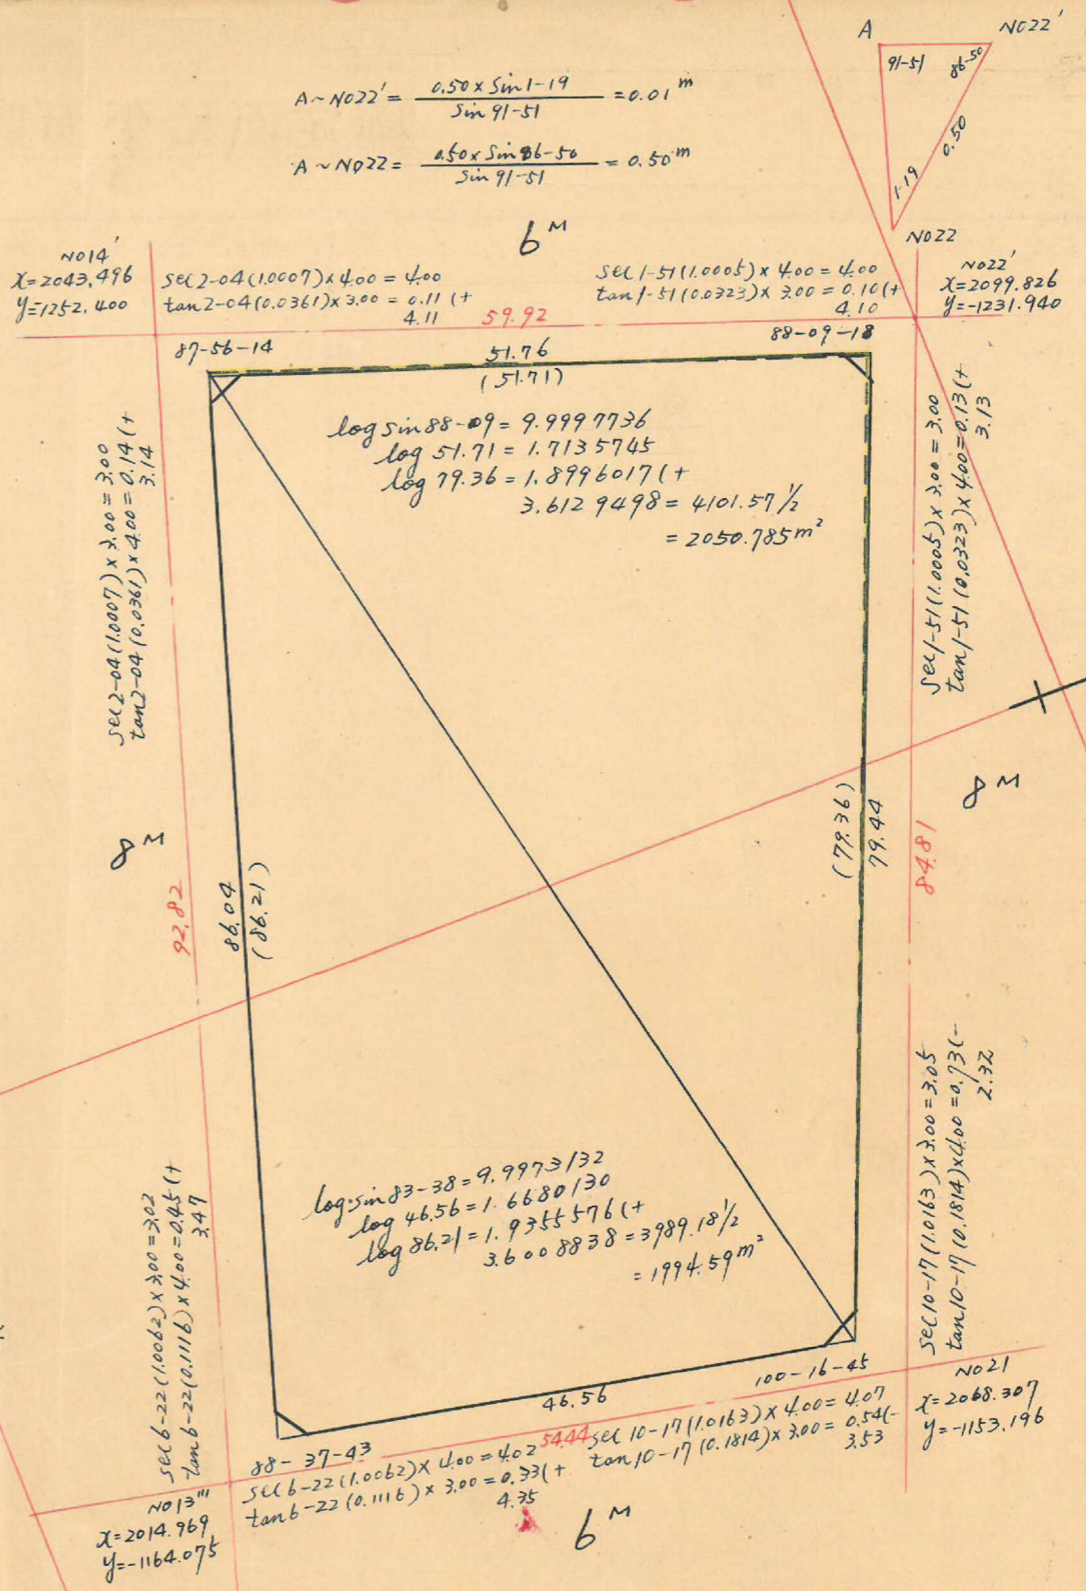 A
NO22'
91-51
86-50
0.50
1-19
NO22
A~NO22' = 0.50 x Sin 1-19 / Sin 91-51 = 0.01 m
A~NO22 = 0.50 x Sin 86-50 / Sin 91-51 = 0.50 m
6 M
NO14'
X=2043.496
y=1252.400
Sec 2-04 (1.0007) x 4.00 = 4.00
tan 2-04 (0.0361) x 3.00 = 0.11 (+
4.11
59.92
Sec 1-51 (1.0005) x 4.00 = 4.00
tan 1-51 (0.0323) x 3.00 = 0.10 (+
4.10
NO22'
X=2099.826
y=-1231.940
87-56-14
51.76
(51.71)
88-09-18
log sin 88-09 = 9.9997736
log 51.71 = 1.7135745
log 79.36 = 1.8996017 (+
3.6129498 = 4101.57 1/2
= 2050.785 m²
Sec 2-04 (1.0007) x 3.00 = 3.00
tan 2-04 (0.0361) x 4.00 = 0.14 (+
3.14
Sec 1-51 (1.0005) x 3.00 = 3.00
tan 1-51 (0.0323) x 4.00 = 0.13 (+
3.13
8 M
92.82
86.04
(86.21)
(79.36)
79.44
84.81
8 M
log sin 83-38 = 9.9973132
log 46.56 = 1.6680130
log 86.21 = 1.9355576 (+
3.6008838 = 3989.18 1/2
= 1994.59 m²
Sec 6-22 (1.0062) x 3.00 = 3.02
tan 6-22 (0.1116) x 4.00 = 0.45 (+
3.47
Sec 10-17 (1.0163) x 3.00 = 3.05
tan 10-17 (0.1814) x 4.00 = 0.73 (-
2.32
46.56
100-16-45
88-37-43
54.44
Sec 6-22 (1.0062) x 4.00 = 4.02
tan 6-22 (0.1116) x 3.00 = 0.33 (+
4.35
Sec 10-17 (1.0163) x 4.00 = 4.07
tan 10-17 (0.1814) x 3.00 = 0.54 (-
3.53
NO21
X=2068.307
y=-1153.196
NO13'''
X=2014.969
y=-1164.075
6 M